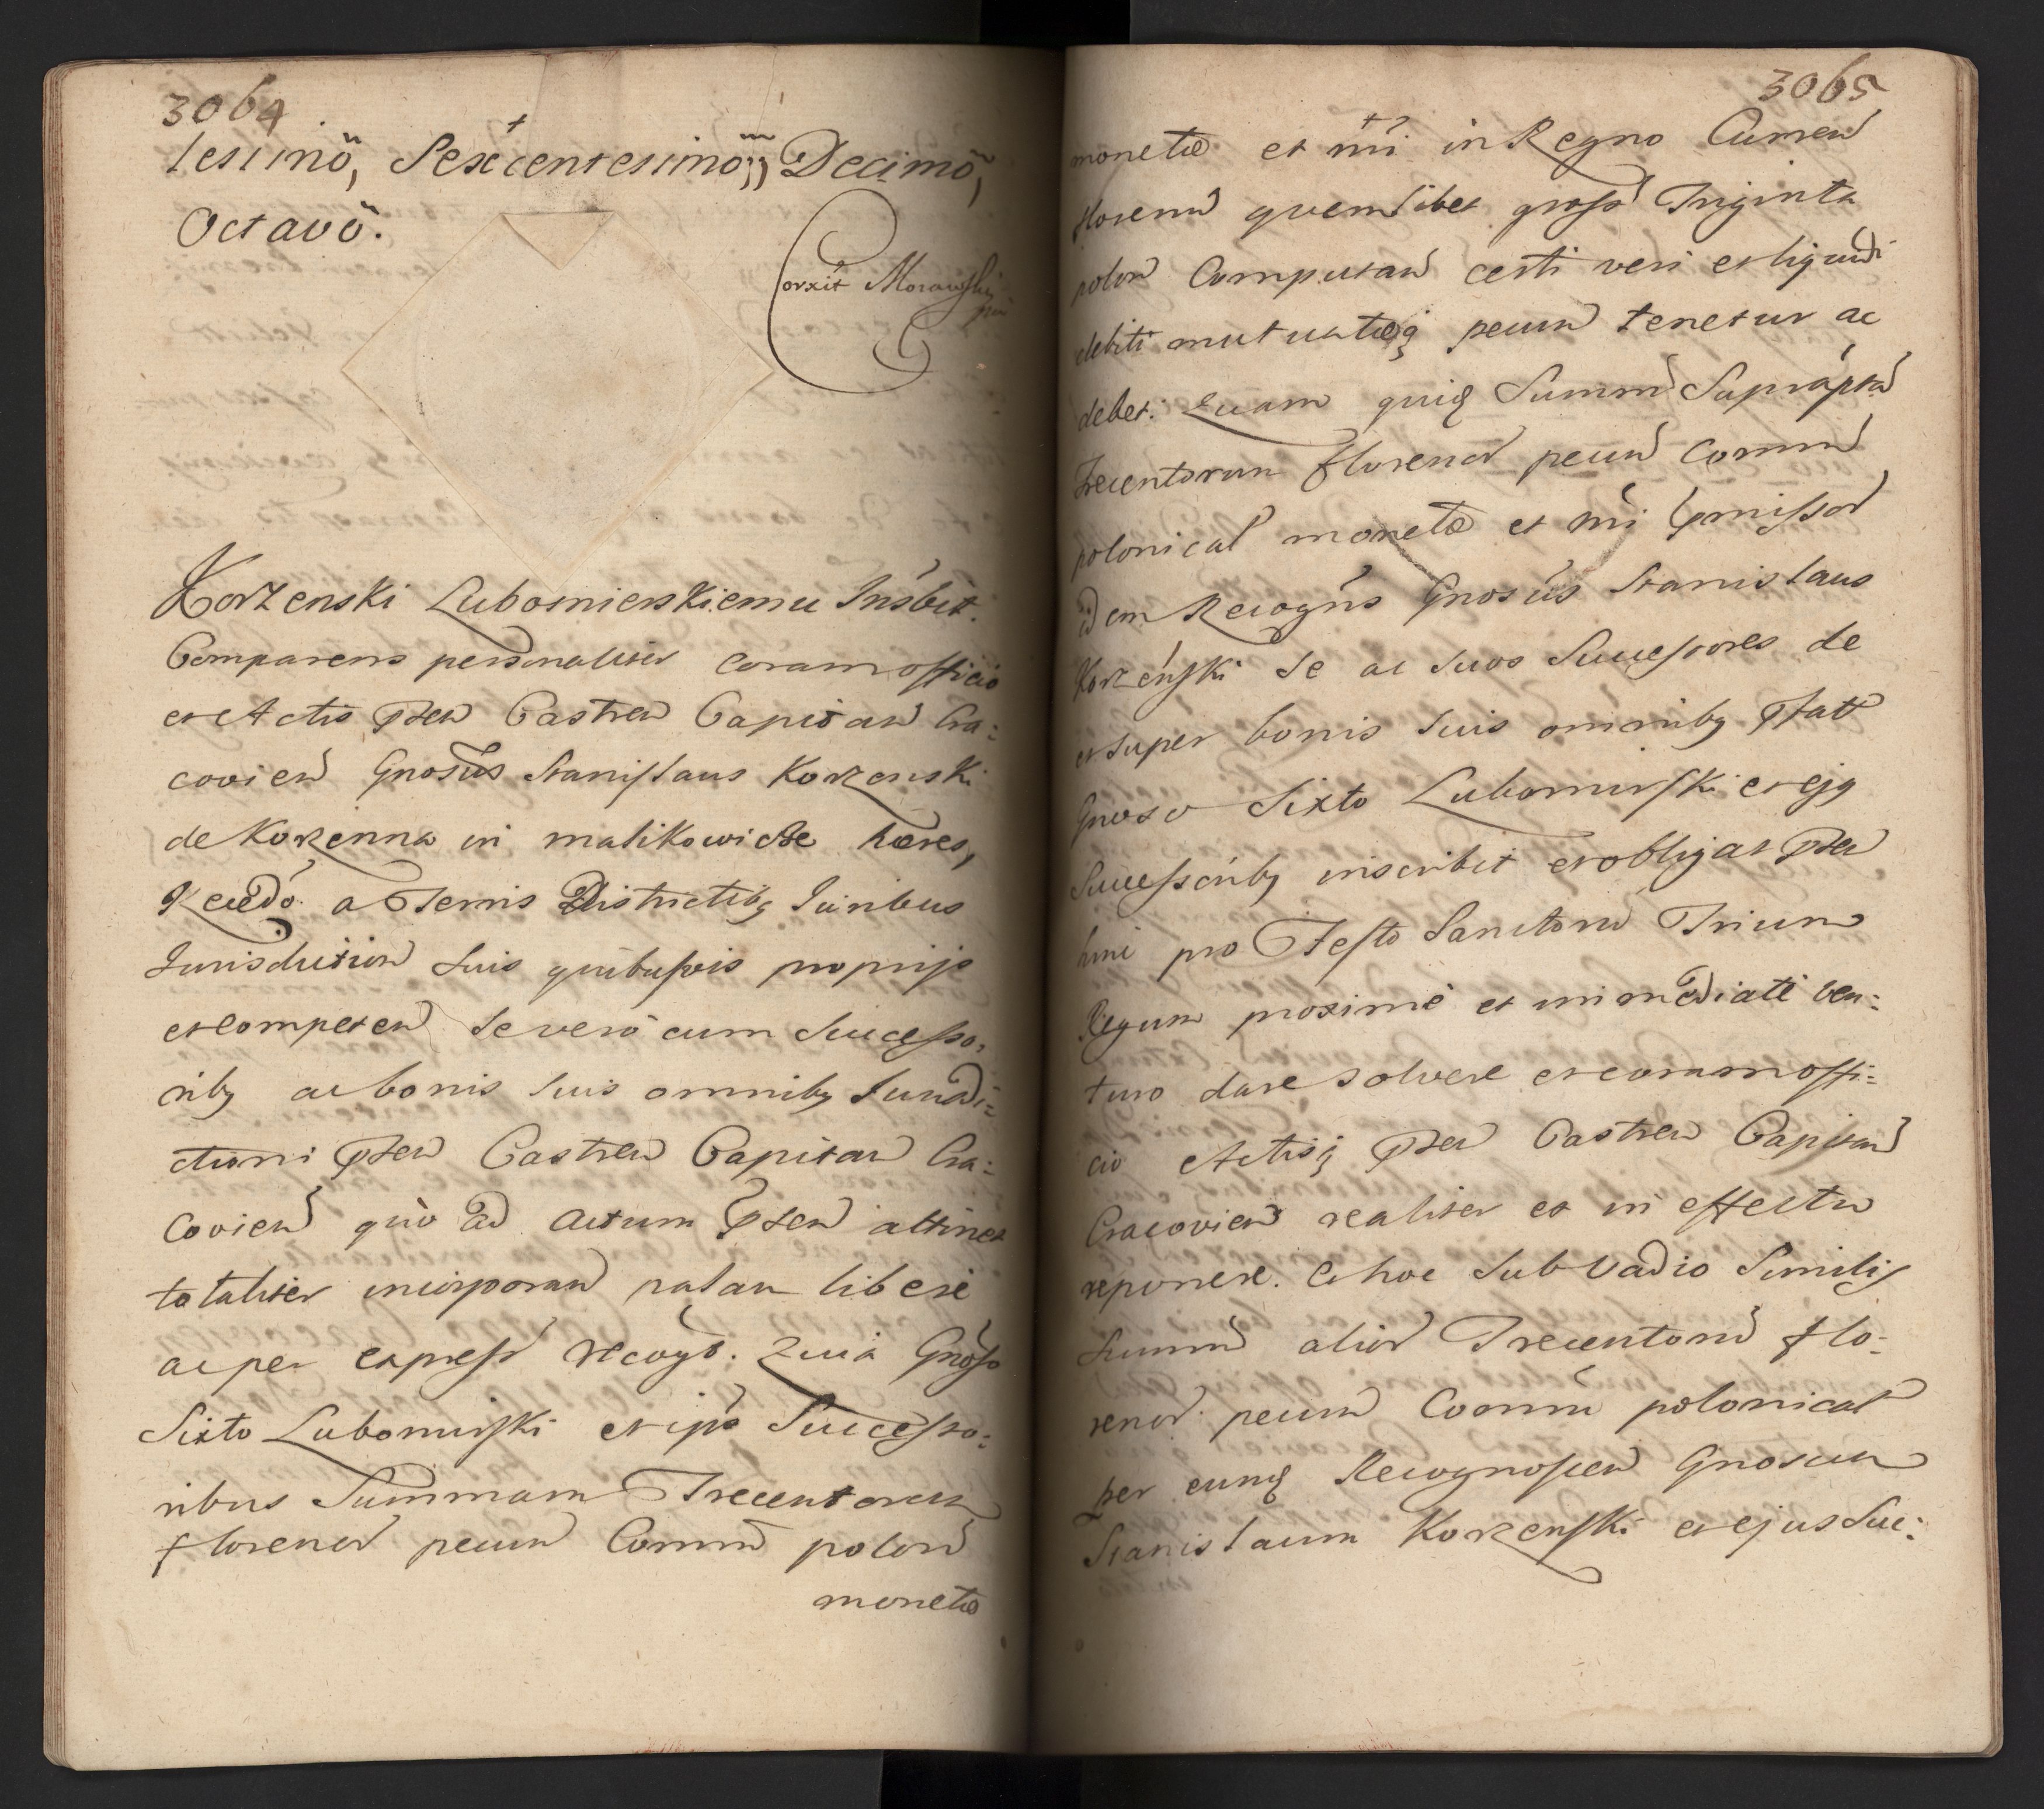 3064
lesimo, Sexcentesimo Decimo,
Octavo.
Corxit Morawski
Korzenski Lubomierskiemu Insbit.
Comparens personaliter coram officio
et Actis pten Castren Capitan Cra:
covien Gnosus Stanislaus Korzenski
de Korzenna in malikowicze hæres,
Recedo a Terris Districtibq Juribus
Jurisdiction suis quibusvis proprijs
et competen se vero cum Successo:
ribq ac bonis suis omnibq Jurisdi:
ctioni pten Castren Capitan Cra:
covien quo ad actum pten attinet
totaliter incorporan palam libere
ac per express recogt. Quia Gnoso
Sixto Lubomirski et ipo Successo:
ribus Summam Trecentorum
florenor pecun Comm polon
monetæ
3065
monetæ et nri in Regno Curren
florenum quemlibet gross Triginta
polon Computan certi veri et liquidi
debiti mutuatæq pecun tenetur ac
debet. Quam quiq Summ Supraptam
Trecentorum florenor pecun comm
polonical monetæ et nri pmissor
idem Recogns Gnosus Stanislaus
Korzenski se ac suos Successores de
et super bonis suis omnibq ptatt
Gnoso Sixto Lubomirski et ejq
Successoribq inscribit et obligat pten
hini pro Festo Sanctorum Trium
Regum proxime et immediate ven:
turo dare solvere et coram offi:
cio Actisq pten Castren Capitan
Cracovien realiter et in effectu
reponere. Et hoc Sub Vadio Similis
Summ alior Trecentorum flo:
renor pecun Comm polonical
per eunq Recognoscen Gnosum
Stanislaum Korzenski et ejus Suc: